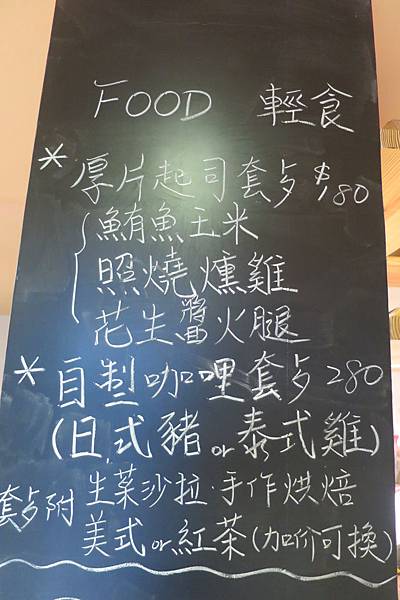 FOOD 輕食
* 厚片起司套歺 $180
鮪魚玉米
照燒燻雞
花生醬火腿
* 自製咖哩套歺 280
(日式豬 or 泰式雞)
套歺附 生菜沙拉·手作烘焙
美式 or 紅茶 (加价可換)